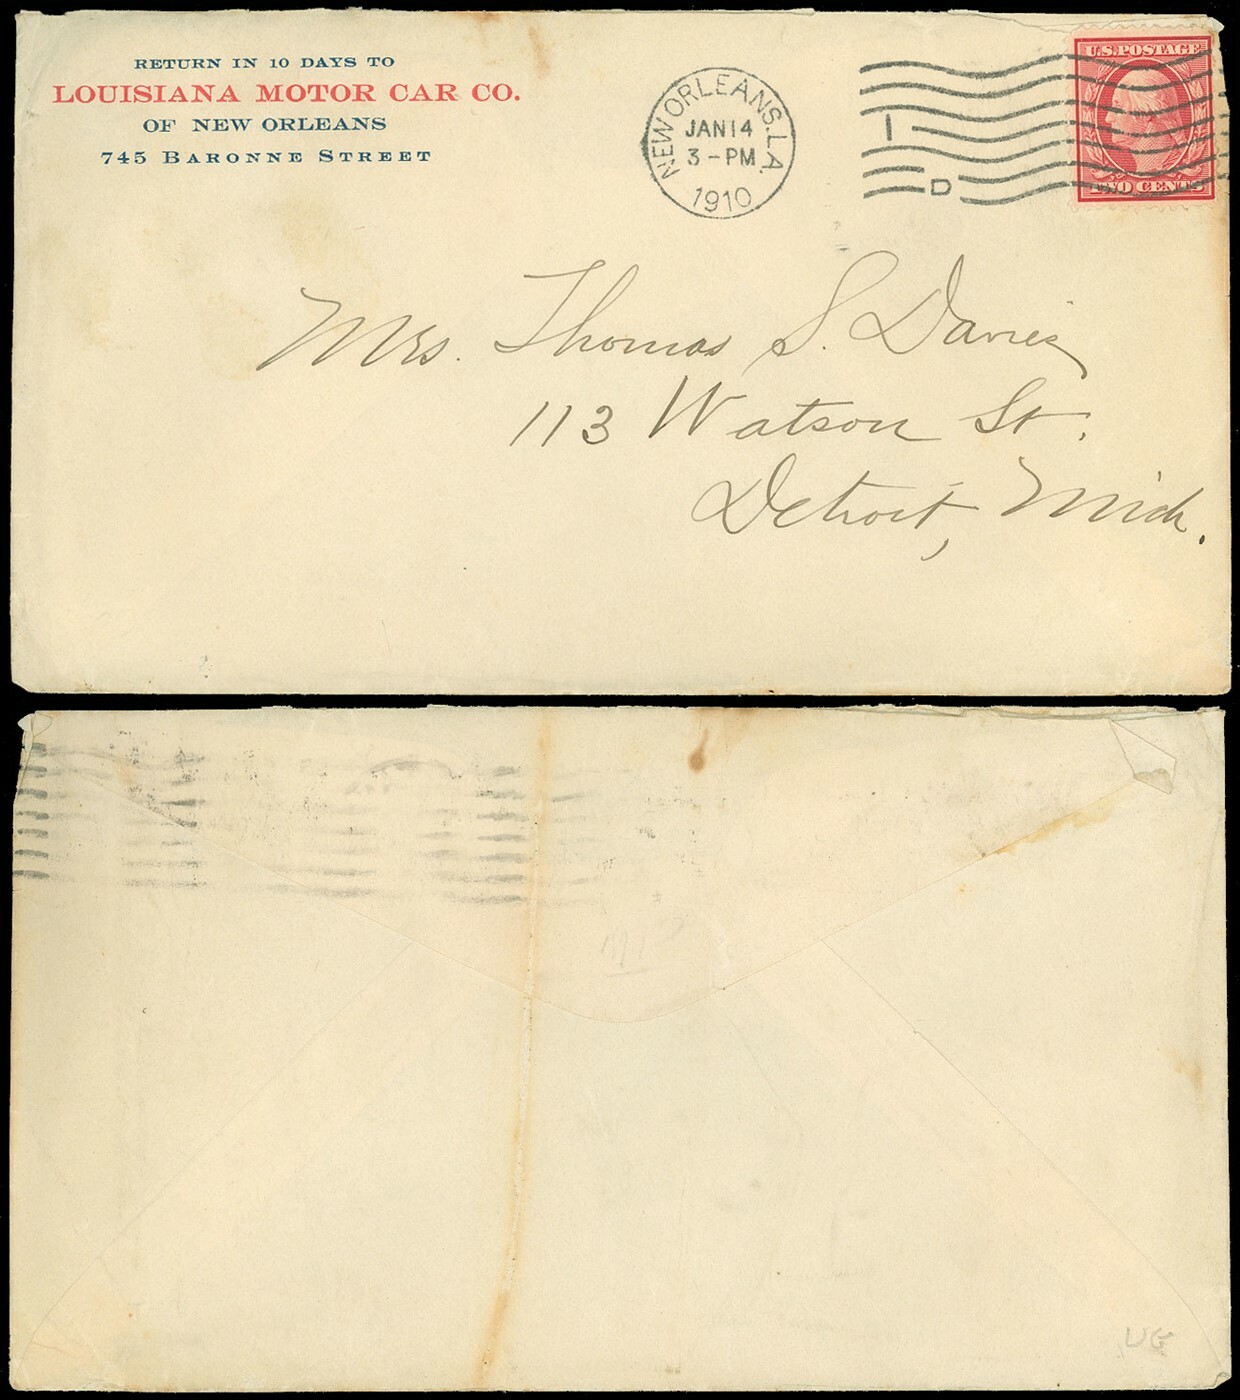 RETURN IN 10 DAYS TO
LOUISIANA MOTOR CAR CO.
OF NEW ORLEANS
745 BARONNE STREET
NEW ORLEANS, LA.
JAN 14
3-PM
1910
1
D
U.S. POSTAGE
TWO CENTS
Mrs. Thomas S. Davies
113 Watson St.
Detroit, Mich.
UG